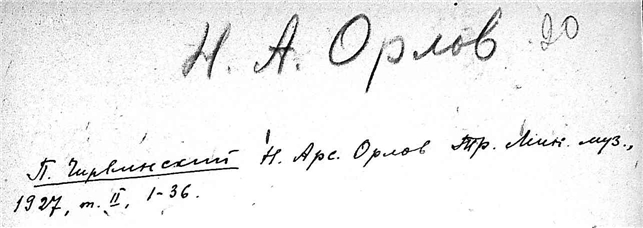 Н. А. Орлов 20
П. Чирвинский Н. Арс. Орлов Тр. Мин. муз.,
1927, т. II, 1-36.